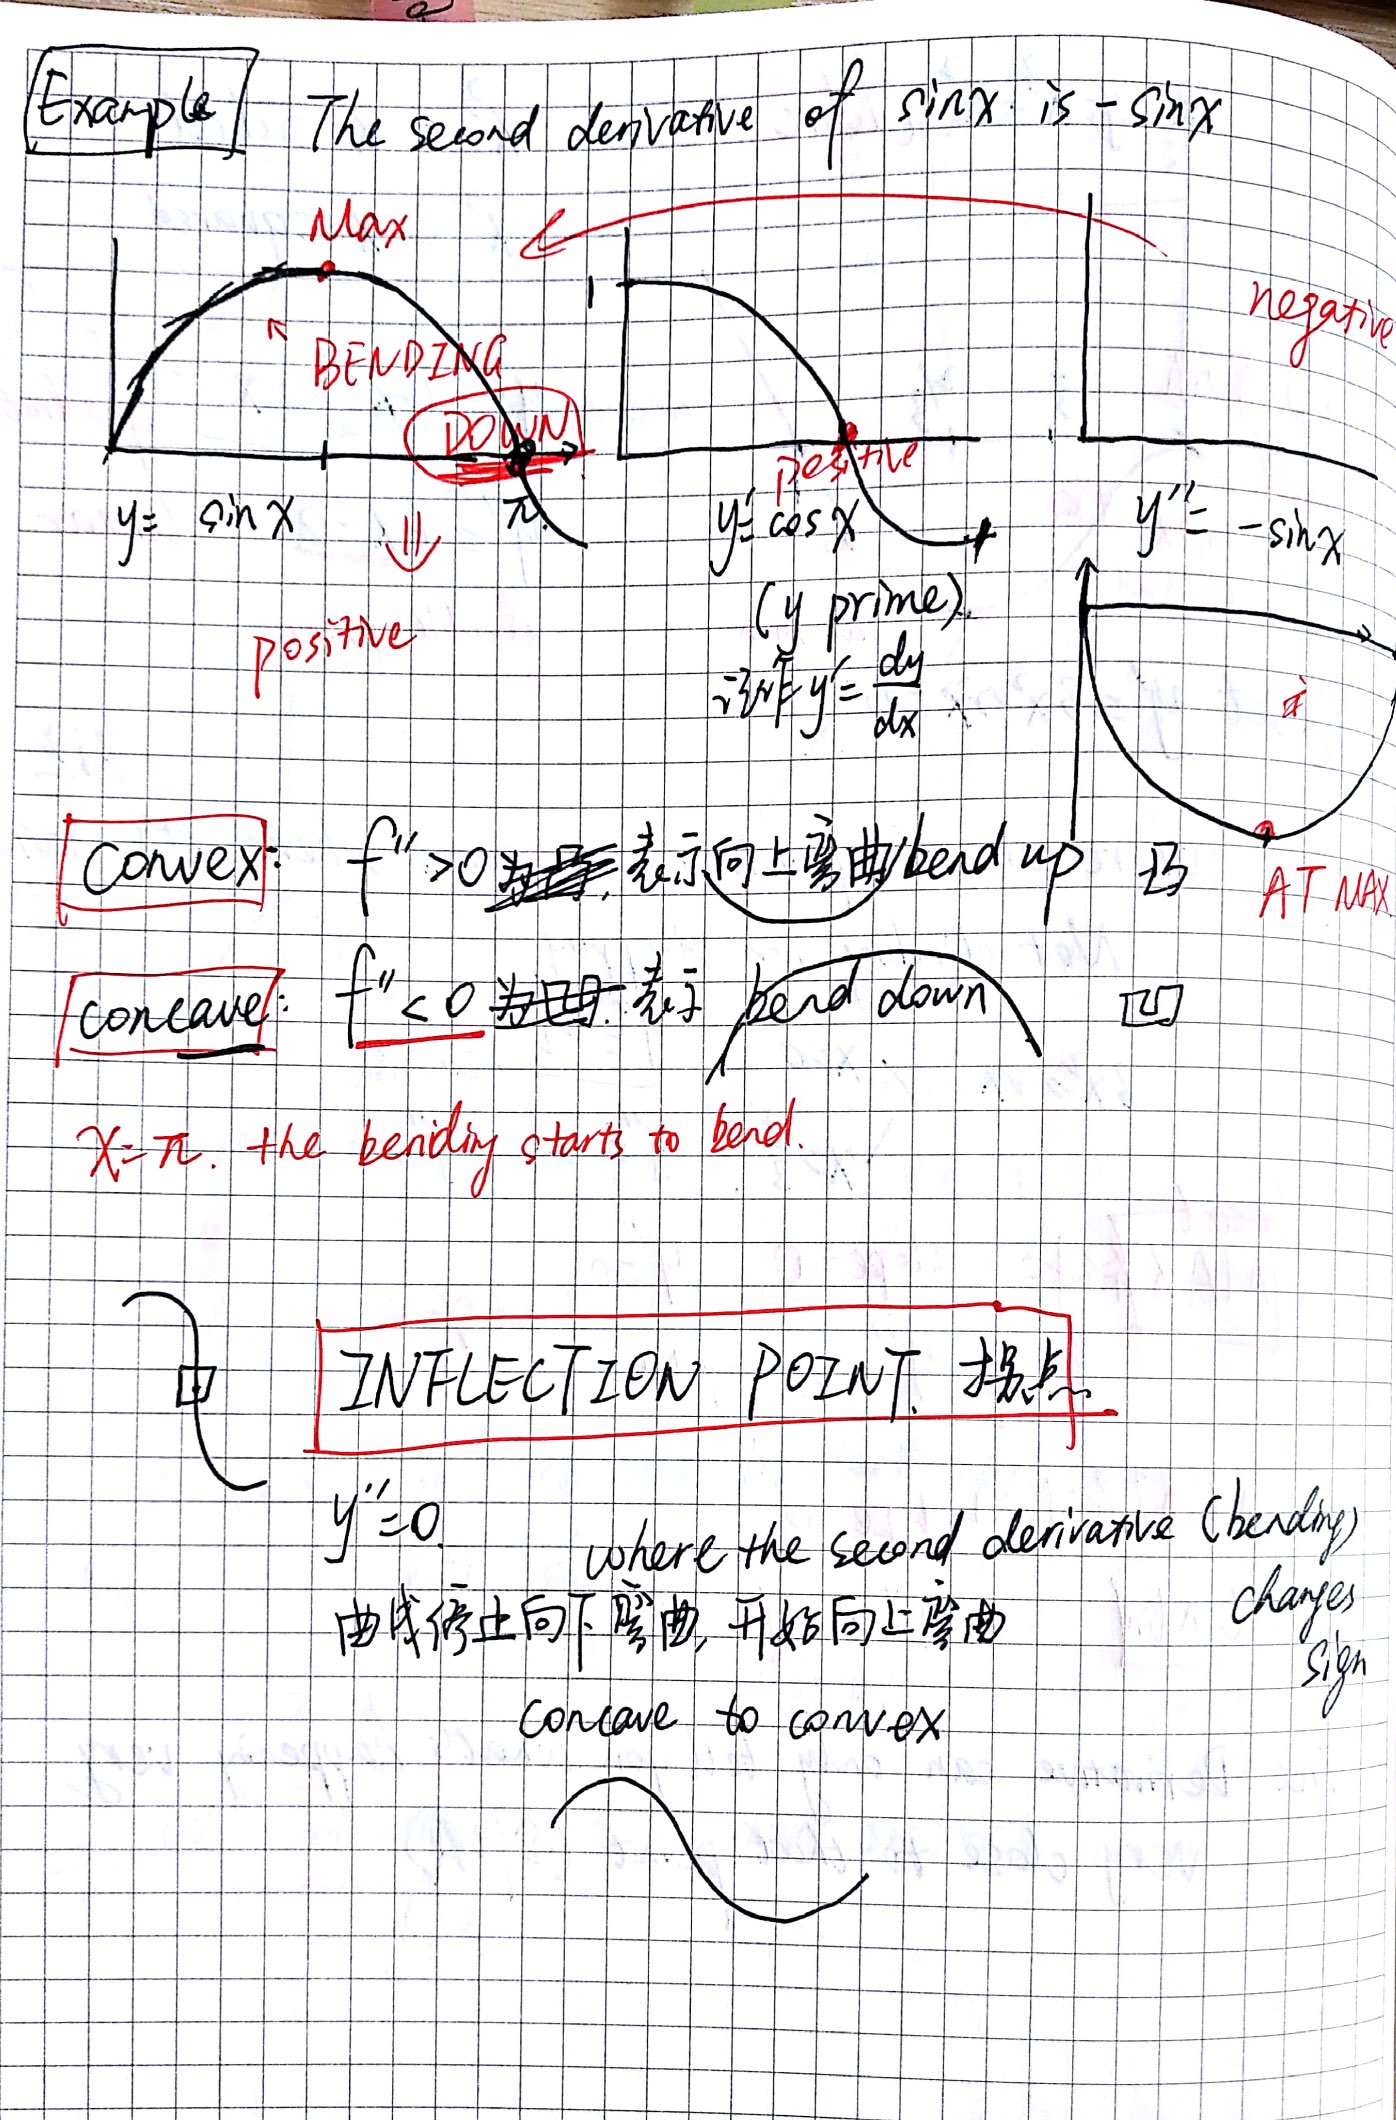 Example The second derivative of sinx is -sinx
Max
1
negative
BENDING
DOWN
positive
y= sinx
π
y'= cosx
y''= -sinx
(y prime)
positive
记作 y'= dy/dx
Convex: f''>0 表示向上弯曲/bend up 凸
AT MAX
concave: f''<0 表示 bend down 凹
x=π. the bending starts to bend.
INFLECTION POINT. 拐点
y''=0.
where the second derivative (bending)
changes
sign
曲线停止向下弯曲, 开始向上弯曲
concave to convex